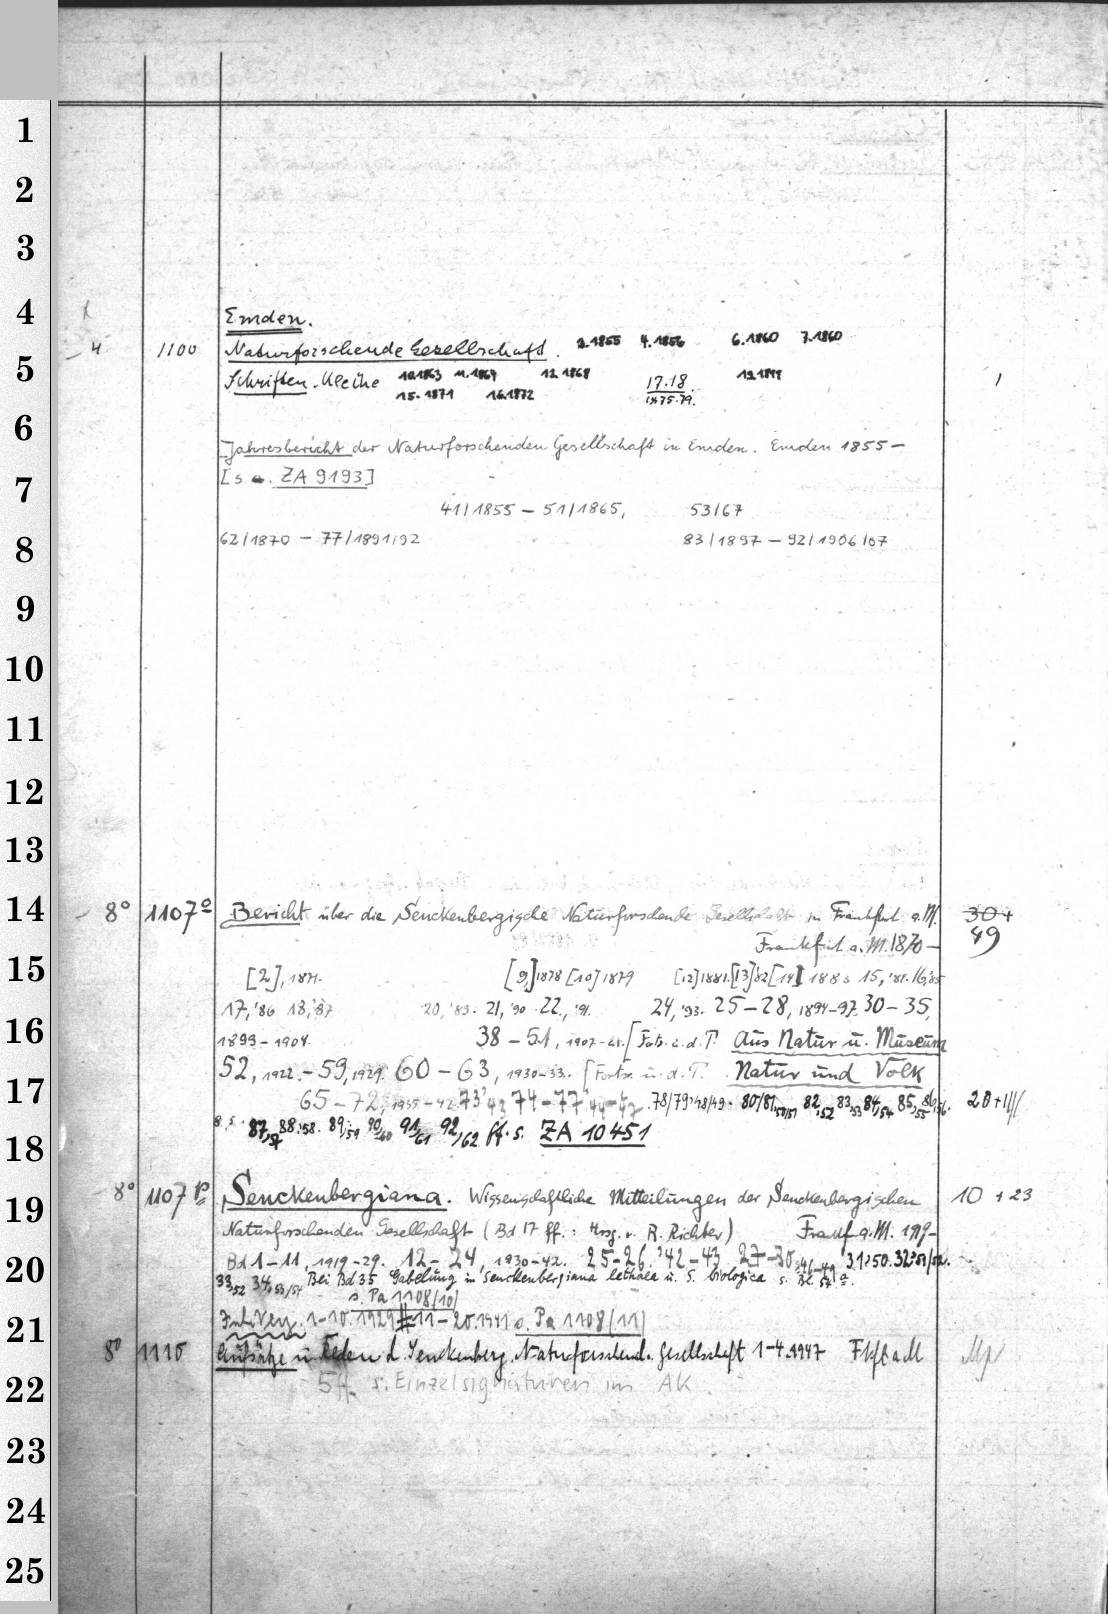 1
2
3
4
Emden.
4 1100 Naturforschende Gesellschaft. 2.1855 4.1856 6.1860 7.1860
5
Schriften. Kleine 10.1863 11.1864 12.1868 17.18. 19.1899
15.1871 16.1872 1875.79.
6
Jahresbericht der Naturforschenden Gesellschaft in Emden. Emden 1855 –
7
[s. a. ZA 9193]
41/1855 – 51/1865, 53/67
8
62/1870 – 77/1891/92 83/1897 – 92/1906/07
9
10
11
12
13
14
8° 1107º Bericht über die Senckenbergische Naturforschende Gesellschaft in Frankfurt a.M. 30+
Frankfurt a.M. 1870 – 49
15
[2], 1871. [9,] 1878 [10] 1879 [12] 1881. [13] '82 [14] 1883 15,
17, '86 18, '87 20, '89. 21, '90 22, '91. 24, '93. 25–28, 1894–97. 30–35,
16
1899–1904. 38–51, [Forts. u. d. T. Aus Natur u. Museum
52, 1922. – 59, 1929. 60–63, 1930–33. [Forts. u. d. T. Natur und Volk
17
65–72, 1935–42 73'43 74–77'44–47 78/79'48/49. 80/81, 82,52 83,53 84,54 85,55 86,56. 20+
87,57 88,58. 89,59 90,60 91,61 92,62 ff. s. ZA 10451
18
8° 1107 p Senckenbergiana. Wissenschaftliche Mitteilungen der Senckenbergischen 10 + 23
19
Naturforschenden Gesellschaft (Bd 17 ff.: Hrsg. v. R. Richter) Frankf a.M. 1919–
20
Bd 1–11, 1919–29. 12–24, 1930–42. 25–26, '42–43 27–30, 46–49 31,50. 32,51/52.
33,52 34,53/54 Bei Bd 35 Gabelung in Senckenbergiana lethaea u. S. biologica s. Bl.
s. Pa 1108 (10)
21
1–10.1929 # 11–20.1941 s. Pa 1108 (11)
8° 1110 Aufsätze u. Reden d. Senckenberg. Naturforschend. Gesellschaft 1–4.1947 Fkft a M
22
5 ff. s. Einzelsignaturen im AK.
23
24
25